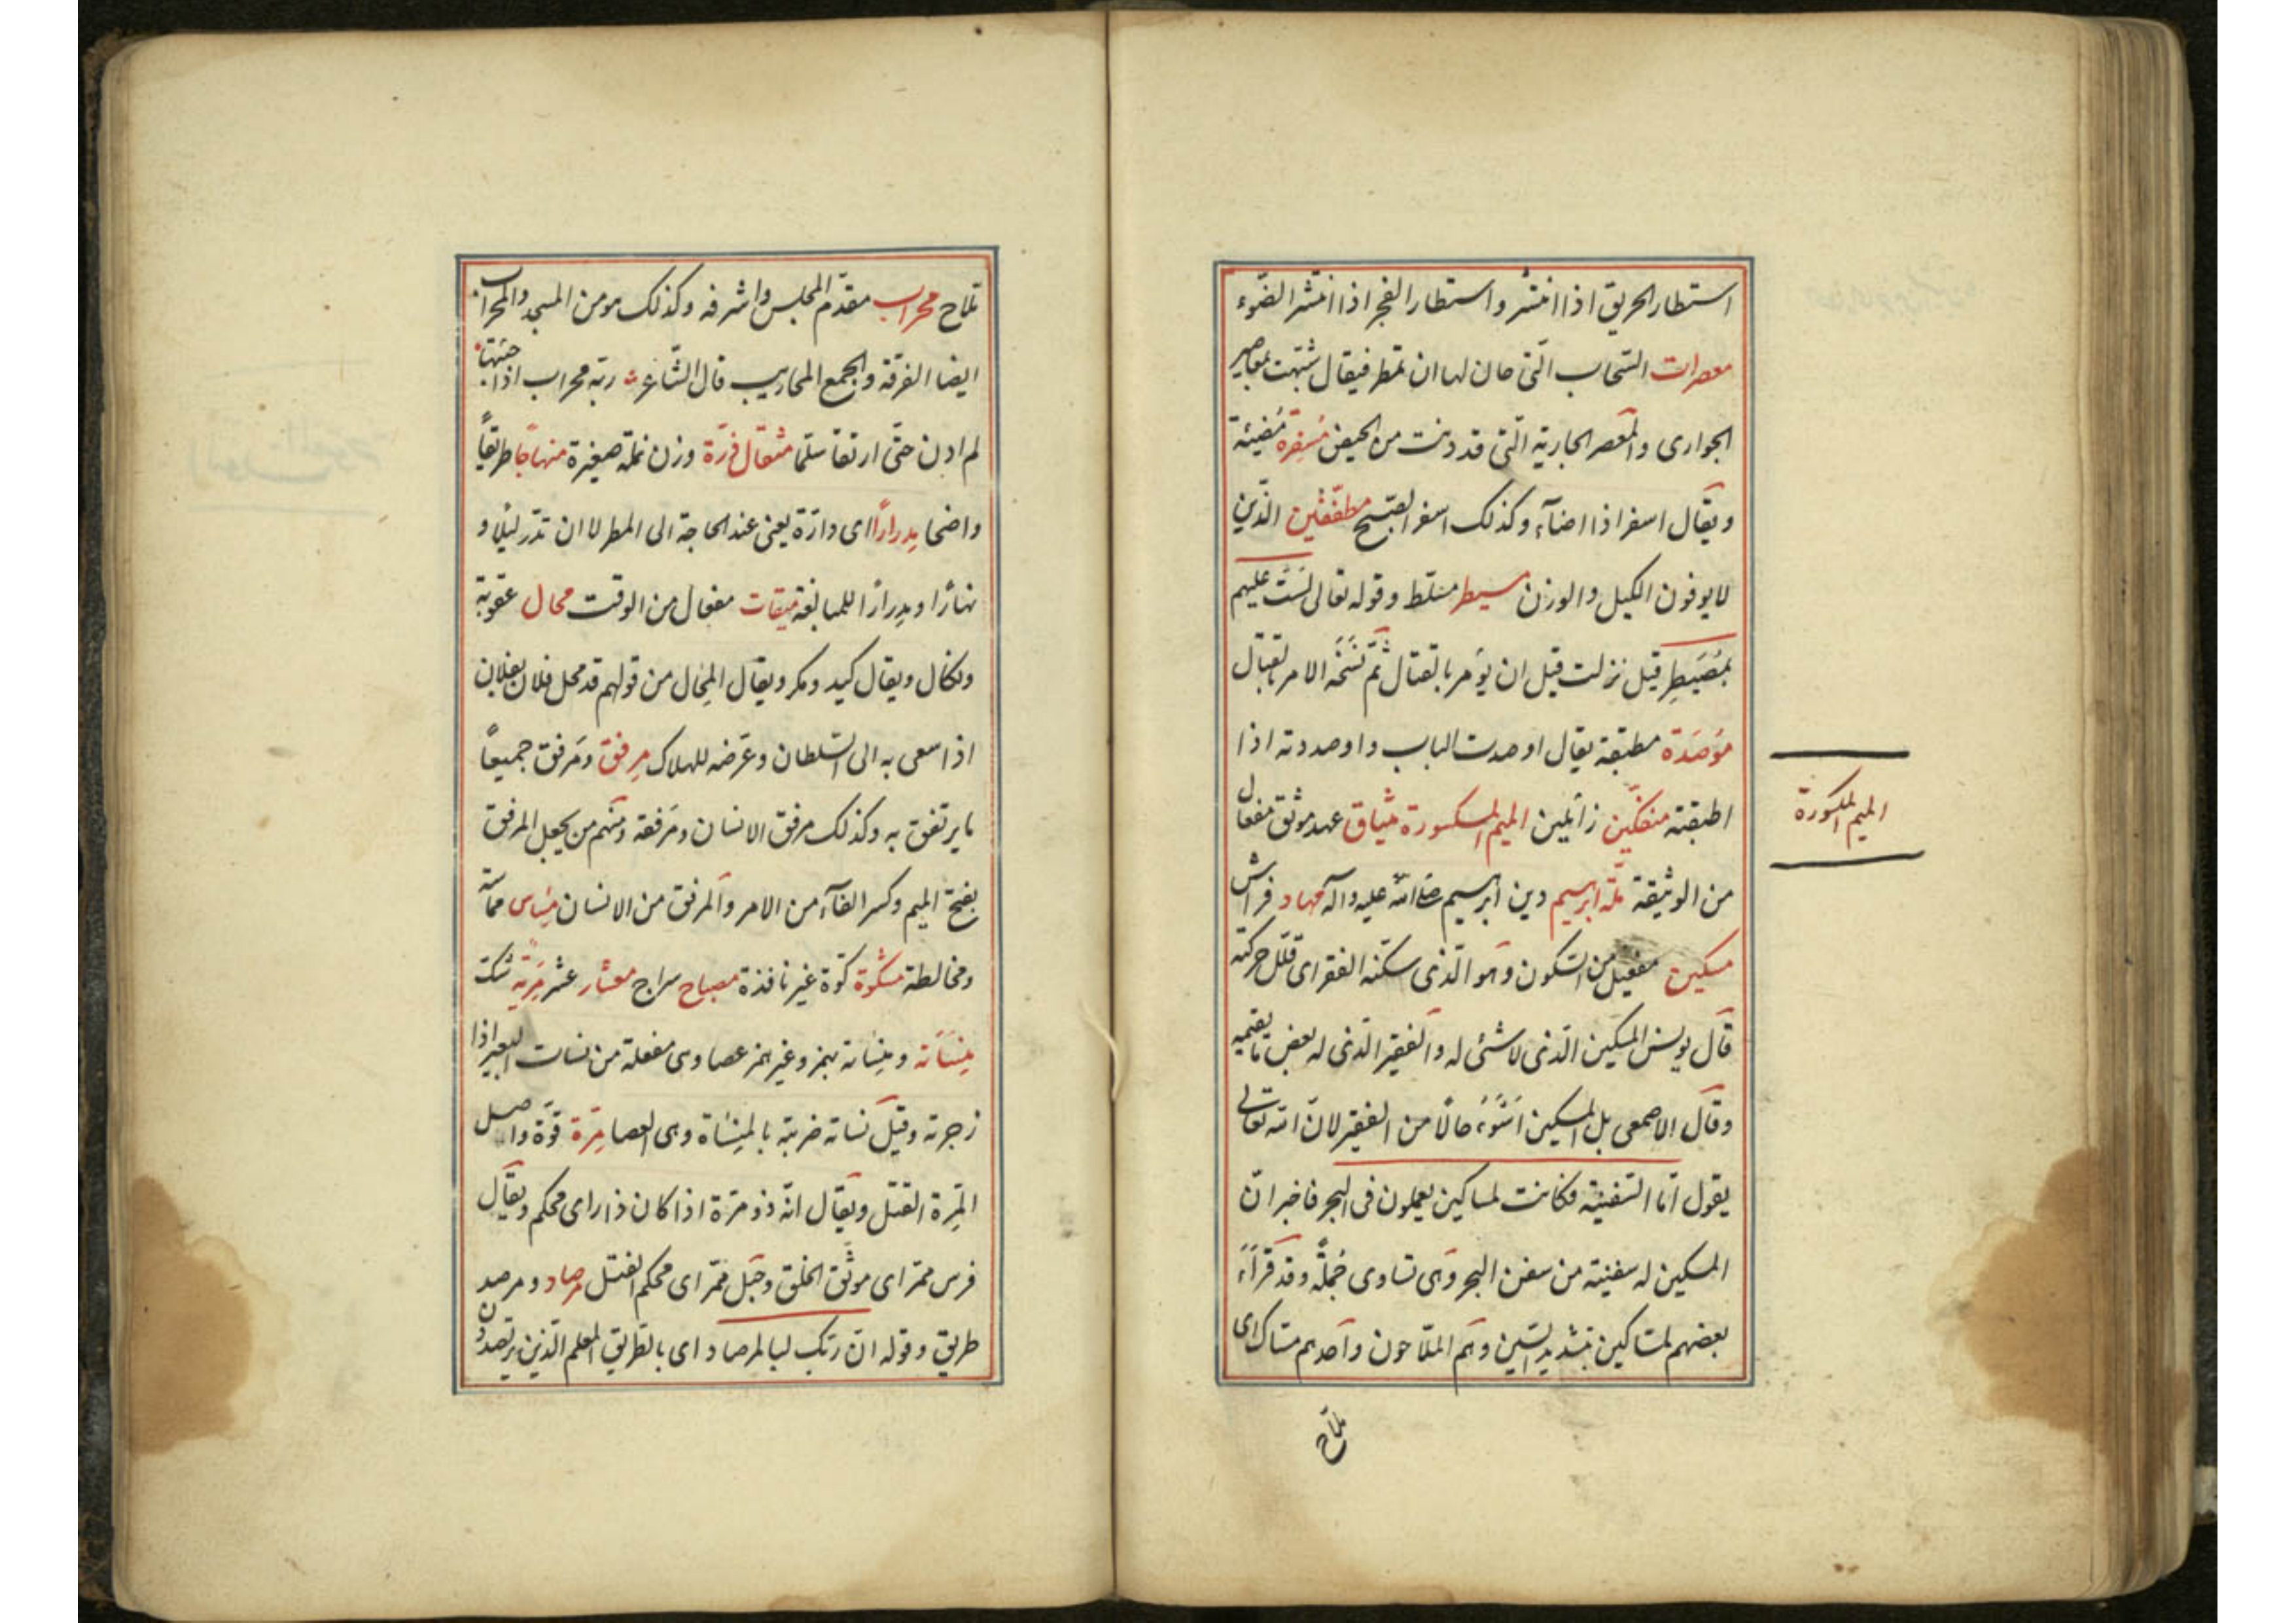 استطار الحريق اذا انتشر واستطار الفجر اذا انتشر الضّوء
معصرات السّحاب الّتى حان لها ان تمطر فيقال شبّهت بمعاصير
الجوارى والمعصر الجارية الّتى قد دنت من الحيض مُسفِرة مُضيئة
ويقال اسفر اذا اضآء وكذلك اسفر الصّبح مطفّفين الّذين
لا يوفون الكيل والوزن مسيطر مسلّط وقوله تعالى لَسْتَ عليهم
بمُصَيطِر قيل نزلت قبل ان يؤمر بالقتال ثمّ نَسَخَه الامر بالقتال
مؤصَدَة مطبقة يقال اوصدت الباب واوصدته اذا
اطبقته منفكّين زائلين الميم المكسورة ميثاق عهد موثق مفعال
الميم المكسورة
من الوثيقة ملّة ابرهيم دين ابرهيم صلى الله عليه وآله مهاد فراش
مسكين مفعيل من السّكون وهو الّذى سكّنه الفقر اى قلّل حركته
قال يونس المسكين الّذى لا شئ له والفقير الّذى له بعض ما يقيمه
وقال الاصمعى بل المسكين اَسْوَء حالًا من الفقير لانّ الله تعالى
يقول امّا السّفينة فكانت لمساكين يعملون فى البحر فاخبر انّ
المسكين له سفينة من سفن البحر وهى تساوى جُملةً وقد قَرَأَ
بعضهم لمسّاكين بتشديد السّين وهم الملّاحون واحدهم مسّاك اى
ملّاح
ملّاح محراب مقدّم المجلس واشرفه وكذلك هو من المسجد والمحراب
ايضا الغرفة والجمع المحاريب قال الشّاعر ربّة محراب اذا جئتها
لم ادن حتّى ارتقا سلّما مثقال ذرّة وزن نملة صغيرة منهاجًا طريقًا
واضحا مِدرارًا اى دارّة يعنى عند الحاجة الى المطر لا ان تدرّ ليلا و
نهارًا ومِدرارًا للمبالغة ميقات مفعال من الوقت محال عقوبة
ونكال ويقال كيد ومكر ويقال المِحال من قولهم قد محل فلان بفلان
اذا سعى به الى السّلطان وعرّضه للهلاك مِرفق ومَرفق جميعًا
ما يرتفق به وكذلك مرفق الانسان ومَرفقه ومنهم من يجعل المرفق
بفتح الميم وكسر الفآء من الامر والمرفق من الانسان مِساس مماسّة
ومخالطة مشكوة كوّة غير نافذة مصباح سراج معشار عشر مِرية شك
مِنسَأته ومِنساته بهمز وغير همز عصا وهى مفعلة من نسات البعير اذا
زجرته وقيل نساته ضربته بالمِنساة وهى العصا مِرّة قوّة واصل
المِرة الفتل ويقال انّه ذو مرّة اذا كان ذا راى محكم ويقال
فرس ممرّ اى موثّق الخلق وحَبل ممَرّ اى محكم الفتل مرصاد ومرصد
طريق وقوله انّ ربّك لبالمرصاد اى بالطّريق المعلم الّذين يرتصدون